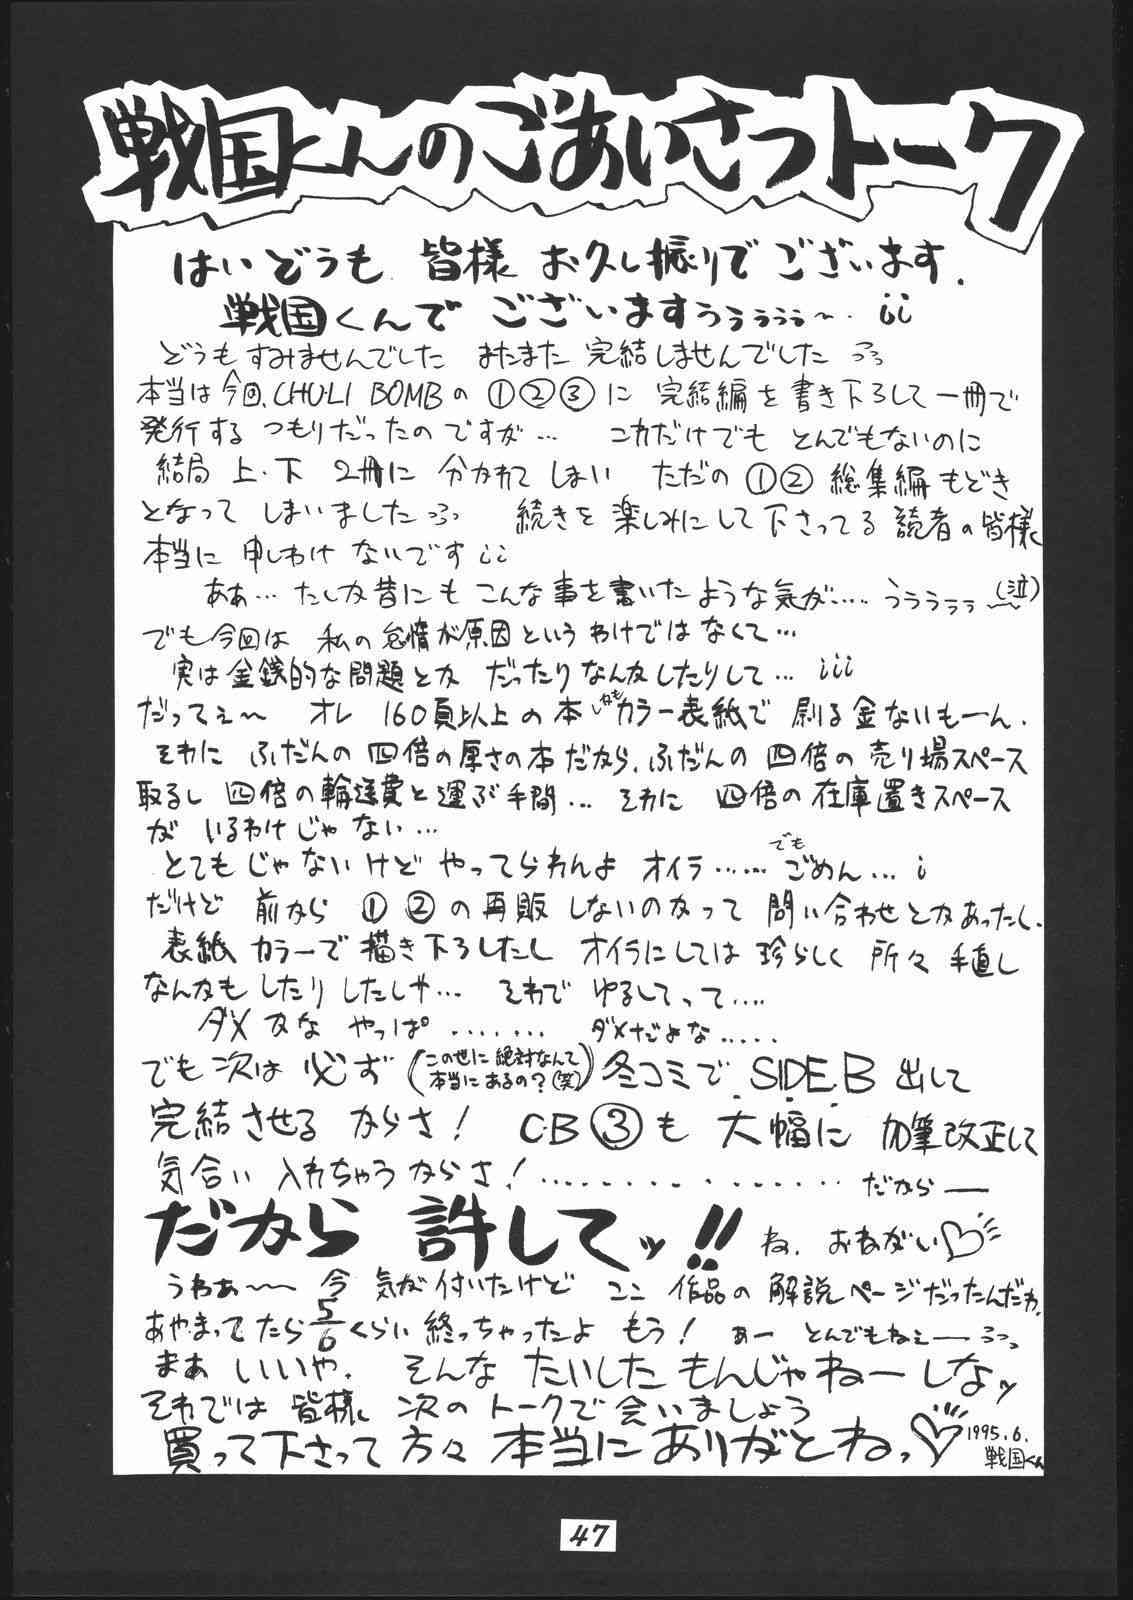 戦国くんのごあいさつトーク
はいどうも 皆様 お久し振りでございます.
戦国くんで ございますぅぅぅぅぅ〜. ii
どうもすみませんでした またまた 完結しませんでした
本当は今回、CHU-LI BOMBの ①②③に 完結編を書き下ろして一冊で
発行する つもりだったのですが… これだけでも とんでもないのに
結局 上・下 2冊に 分かれて しまい ただの ①② 総集編もどき
となって しまいました 続きを 楽しみにして下さってる 読者の皆様
本当に 申しわけ ないです ii
ああ… たしか昔にも こんな事を書いたような気が…. うぅぅぅぅ(泣)
でも今回は 私の怠惰が原因というわけではなくて…
実は金銭的な問題とか だったりなんかしたりして… iii
だってぇ〜 オレ 160頁以上の本しかもカラー表紙で 刷る金ないもーん.
それに ふだんの四倍の厚さの本だから、ふだんの 四倍の 売り場スペース
取るし 四倍の輸送費と運ぶ手間… それに 四倍の在庫置きスペース
が いるわけじゃない…
とてもじゃないけど やってらわんよ オイラ……でもごめん… i
だけど 前から ① ② の再販 しないのかって 問い合わせとかあったし.
表紙 カラーで 描き下ろしたし オイラにしては 珍らしく 所々手直し
なんかも したり したしゃ… それで ゆるしてって….
ダメかな やっぱ ……. ダメだよな…..
でも次は必ず(この世に絶対なんて本当にあるの?(笑))冬コミで SIDE.B 出して
完結させる からさ! C・B③も 大幅に 加筆改正して
気合い 入れちゃうからさ! ................ だから—
だから 許してッ!! ね、おねがい♡
うわぁ〜 今 気が付いたけど ここ 作品の 解説ページだったんだわ.
あやまってたら5/6くらい終っちゃったよ もう! あー とんでもねぇー
まぁ いいや. そんな たいした もんじゃねーしなッ
それでは 皆様、次のトークで会いましょう
買って下さって方々 本当にありがとねっ♡ 1995.6.
戦国くん
47